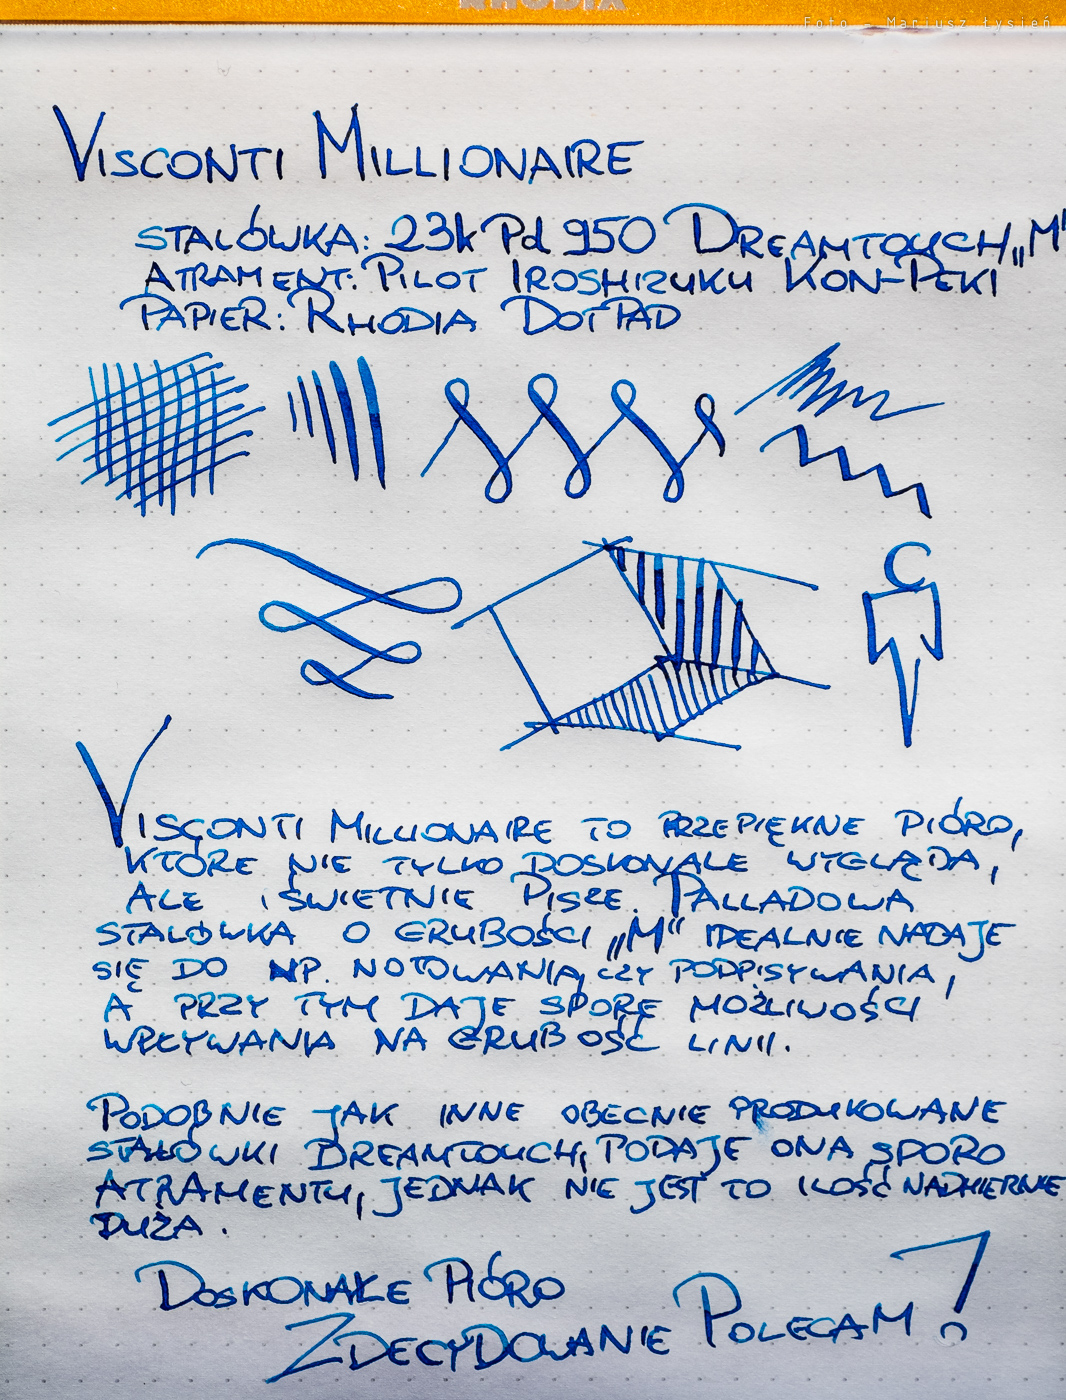 RHODIA
Foto - Mariusz Łysień
VISCONTI MILLIONAIRE
STALÓWKA: 23k Pd 950 DREAMTOUCH „M"
ATRAMENT: PILOT IROSHIZUKU KON-PEKI
PAPIER: RHODIA DOTPAD
VISCONTI MILLIONAIRE TO PRZEPIĘKNE PIÓRO,
KTÓRE NIE TYLKO DOSKONALE WYGLĄDA,
ALE I ŚWIETNIE PISZE. PALLADOWA
STALÓWKA O GRUBOŚCI „M" IDEALNIE NADAJE
SIĘ DO NP. NOTOWANIA, CZY PODPISYWANIA,
A PRZY TYM DAJE SPORE MOŻLIWOŚCI
WPŁYWANIA NA GRUBOŚĆ LINII.
PODOBNIE JAK INNE OBECNIE PRODUKOWANE
STALÓWKI DREAMTOUCH, PODAJE ONA SPORO
ATRAMENTU, JEDNAK NIE JEST TO ILOŚĆ NADMIERNIE
DUŻA.
DOSKONAŁE PIÓRO
ZDECYDOWANIE POLECAM!